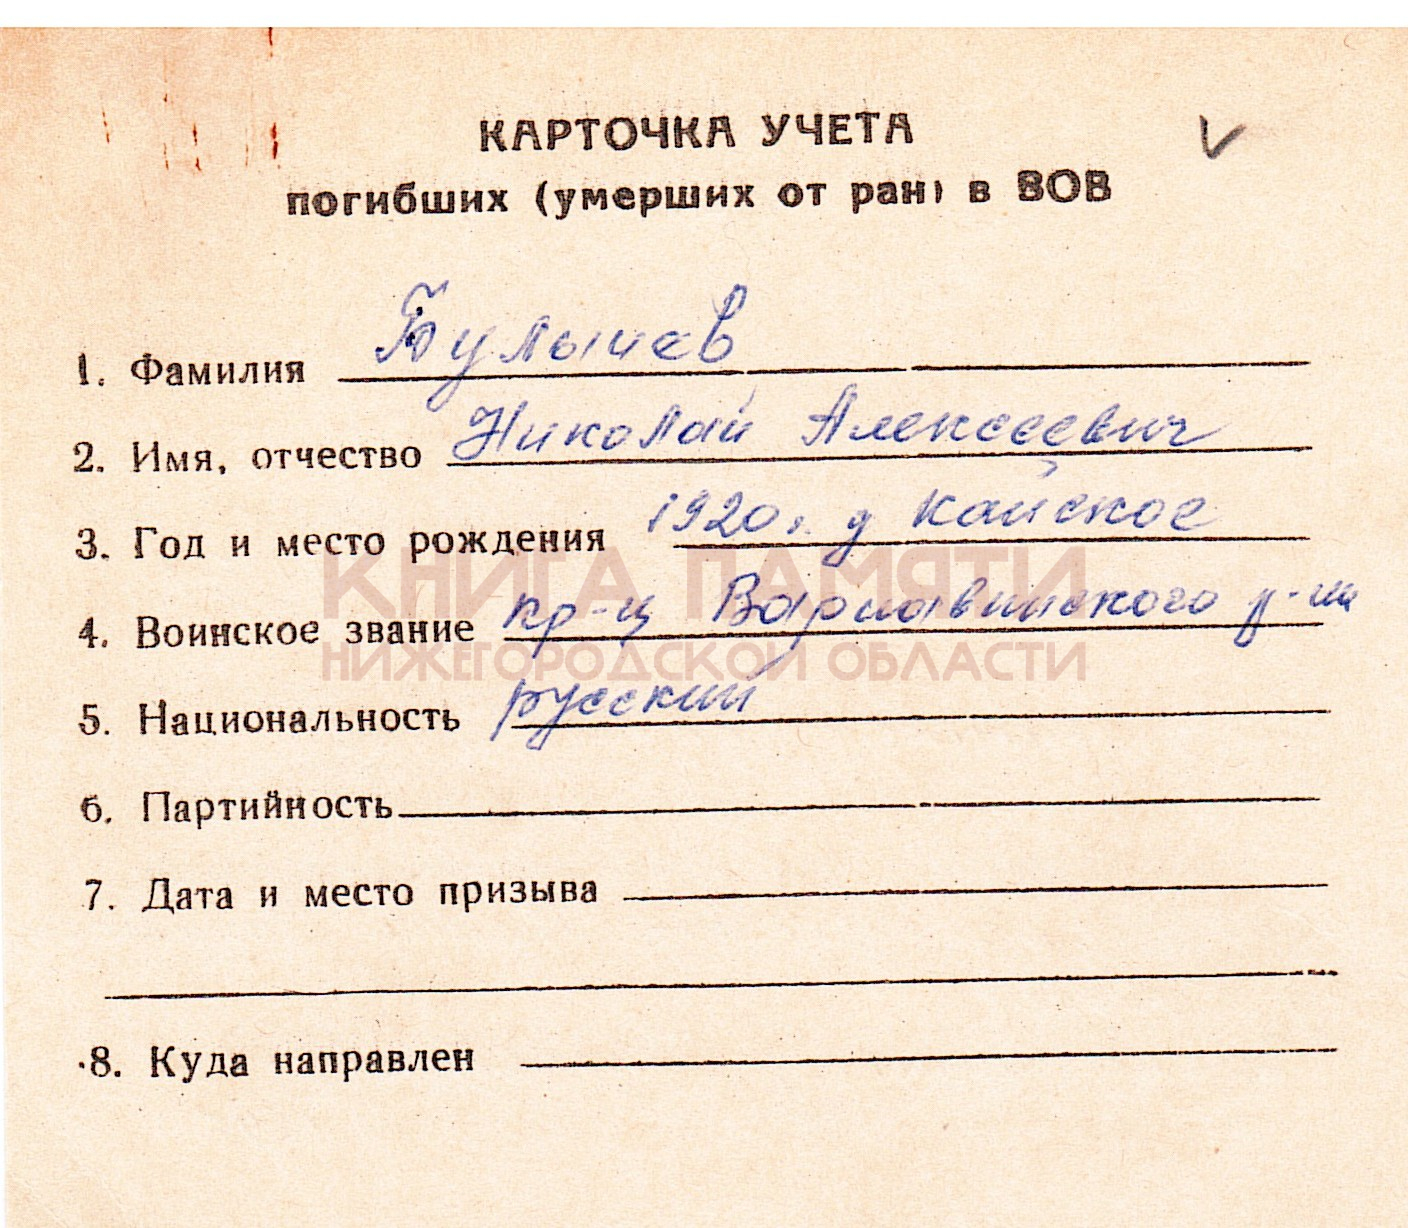 КАРТОЧКА УЧЕТА
погибших (умерших от ран) в ВОВ
1. Фамилия Булычев
2. Имя, отчество Николай Алексеевич
3. Год и место рождения 1920 г. д Кайское
КНИГА ПАМЯТИ
4. Воинское звание кр-ц Варнавинского р-на
НИЖЕГОРОДСКОЙ ОБЛАСТИ
5. Национальность русский
6. Партийность
7. Дата и место призыва
8. Куда направлен